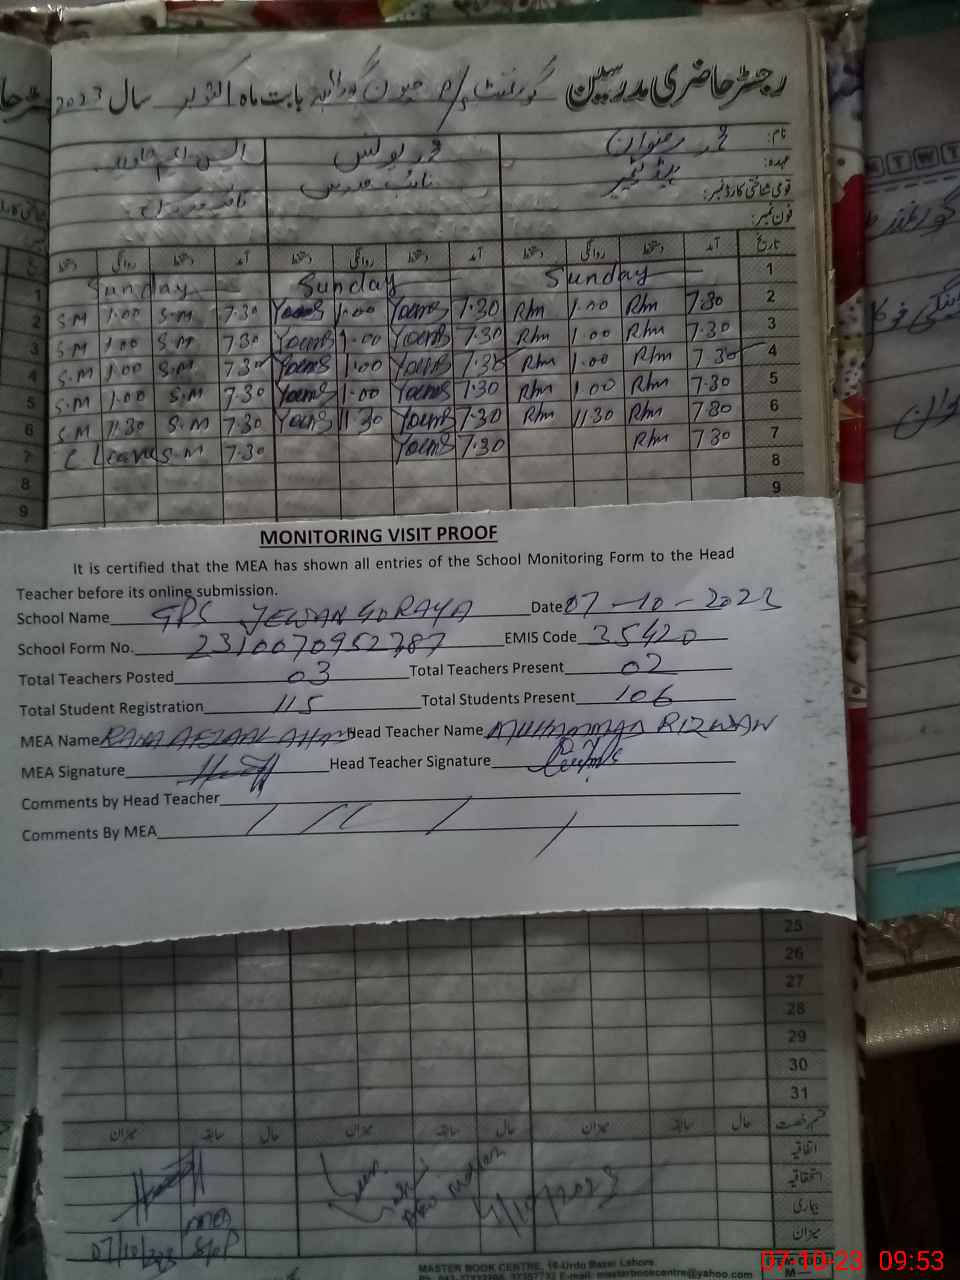 رجسٹر حاضری مدرسین گورنمنٹ بابت ماہ اکتوبر سال 2023
نام: محمد رضوان محمد یونس
عہدہ: ہیڈ ٹیچر نائب مدرس
قومی شناختی کارڈ نمبر:
فون نمبر:
تاریخ آمد دستخط روانگی دستخط آمد دستخط روانگی دستخط آمد دستخط روانگی دستخط
1 Sunday Sunday Sunday
2 7.30 Rhm 1.00 Rhm 7.30 Younis 1.00 Younis 7.30 S.M 1.00 S.M
3 7.30 Rhm 1.00 Rhm 7.30 Younis 1.00 Younis 7.30 S.M 1.00 S.M
4 7.30 Rhm 1.00 Rhm 7.30 Younis 1.00 Younis 7.30 S.M 1.00 S.M
5 7.30 Rhm 1.00 Rhm 7.30 Younis 1.00 Younis 7.30 S.M 1.00 S.M
6 7.30 Rhm 11.30 Rhm 7.30 Younis 11.30 Younis 7.30 S.M 11.30 S.M
7 7.30 Rhm 7.30 Younis 7.30 S.M C Leave
8
9
MONITORING VISIT PROOF
It is certified that the MEA has shown all entries of the School Monitoring Form to the Head
Teacher before its online submission.
School Name GPS JEWAN GORAYA Date 07-10-2023
School Form No. 2310070952787 EMIS Code 35420
Total Teachers Posted 03 Total Teachers Present 02
Total Student Registration 115 Total Students Present 106
MEA Name RANA AFZAAL AHM Head Teacher Name MUHAMMAD RIZWAN
MEA Signature Head Teacher Signature
Comments by Head Teacher
Comments By MEA
25
26
27
28
29
30
31
قسم رخصت حال سابقہ میزان حال سابقہ میزان حال سابقہ میزان
اتفاقیہ
استحقاقیہ
بیماری
میزان
4/10/2023
MEA
07/10/023
MASTER BOOK CENTRE, 16-Urdu Bazar Lahore.
E-mail: masterbookcentre@yahoo.com
07-10-23 09:53